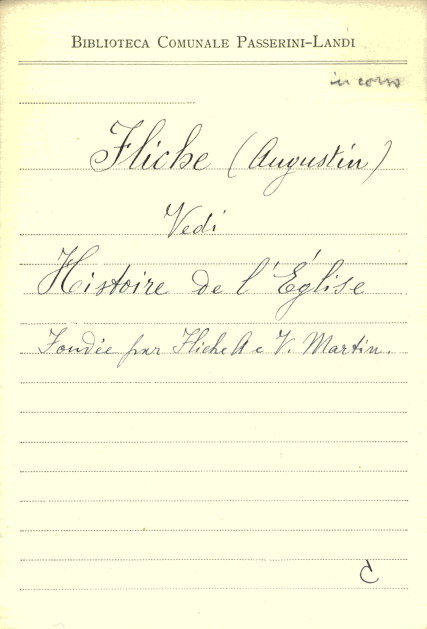 Biblioteca Comunale Passerini-Landi
in corso
Fliche (Augustin)
Vedi
Histoire de l'Église
Fondée par Fliche A e V. Martin.
C